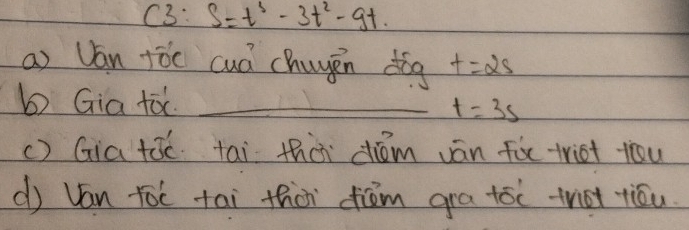 C3: S = t³ - 3t² - 9t.
a) Vận tốc cuả chuyển độg t=2s
b) Gia tốc ________ t=3s
c) Gia tốc tại thời điểm vận tốc triệt tiêu
d) Vận tốc tại thời điểm gia tốc triệt tiêu.